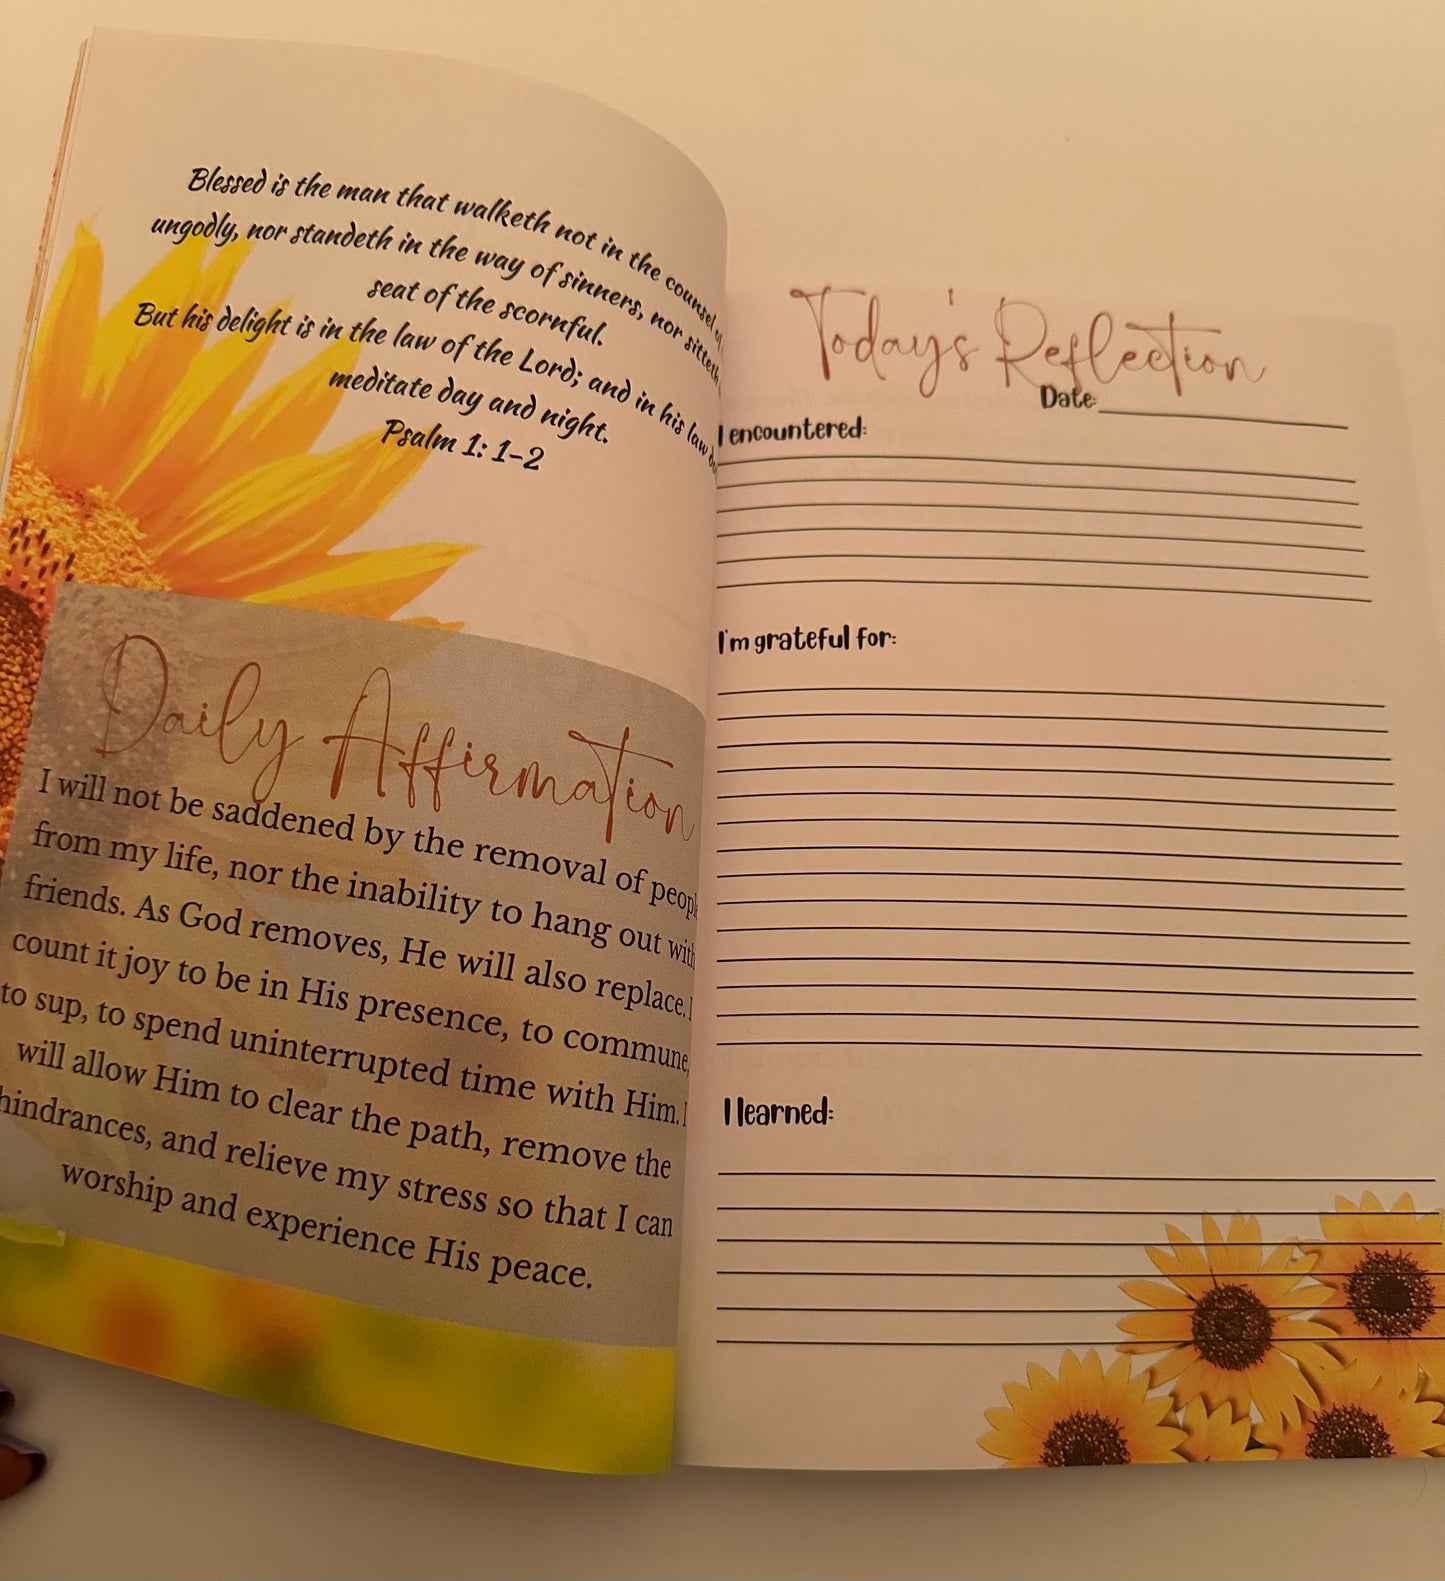 Blessed is the man that walketh not in the counsel of
ungodly, nor standeth in the way of sinners, nor sitteth
seat of the scornful.
But his delight is in the law of the Lord; and in his law
meditate day and night.
Psalm 1: 1-2
Daily Affirmation
I will not be saddened by the removal of
from my life, nor the inability to hang out with
friends. As God removes, He will also replace. I
count it joy to be in His presence, to commune,
to sup, to spend uninterrupted time with Him. I
will allow Him to clear the path, remove the
hindrances, and relieve my stress so that I can
worship and experience His peace.
Today's Reflection
Date:
I encountered:
I'm grateful for:
I learned: